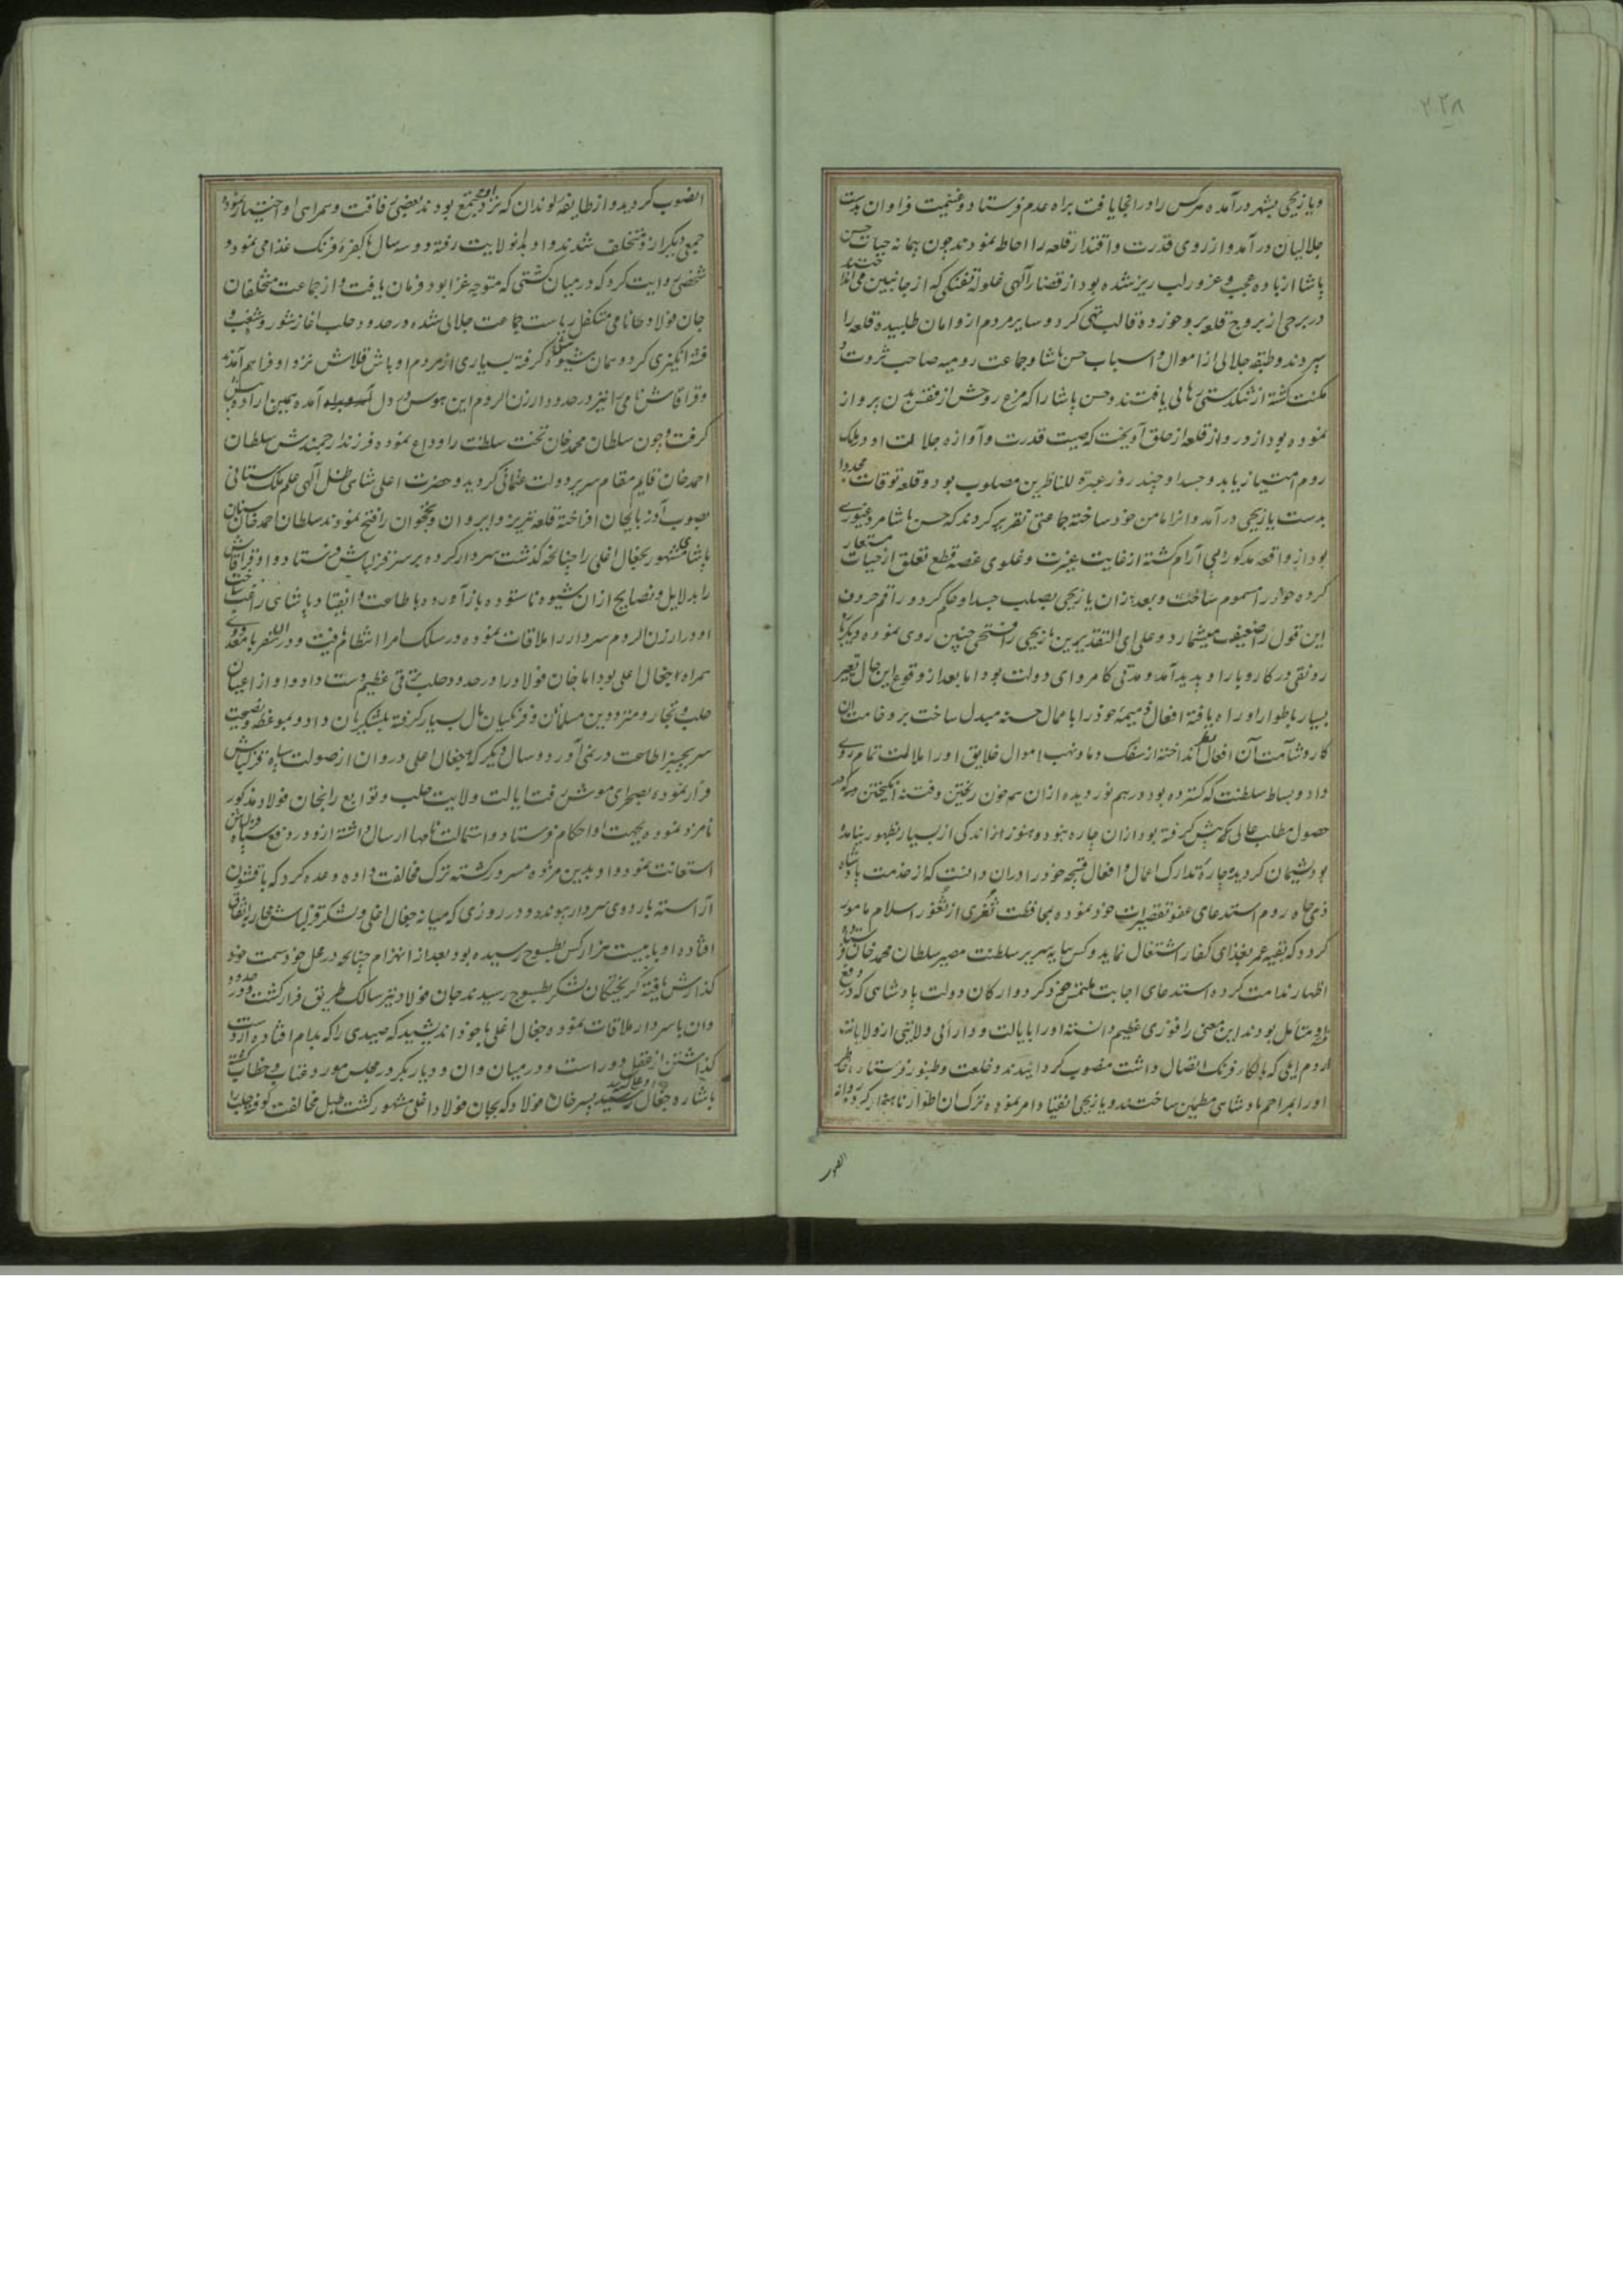 ۲۲۸
ویازیجی بشهر درآمده هرکس را در انجا یافت براه عدم فرستاد و غنیمت فراوان بدست
جلالیان درآمد و از روی قدرت و اقتدار قلعه را احاطه نمودند چون پیمانه حیات حسن
پاشا از باده عجب و غرور لبریز شده بود از قضاء آلهی غلوله تفنکی که از جانبین می انداختند
در برجی از بروج قلعه برو خورده قالب تهی کرد و سایر مردم ازو امان طلبیده قلعه را
سپردند و طبقه جلالی از اموال و اسباب حسن پاشا و جماعت رومیه صاحب ثروت و
مکنت کشته از تنکدستی رهائی یافتند و حسن پاشا را که مرغ روحش از قفس بدن پرواز
نموده بود از دروازه قلعه از حلق آویخت که صیت قدرت و آوازه جلالت او در ملک
روم امتیاز یابد و جسد او چند روز عبرة للناظرین مصلوب بود و قلعه توقات مجددا
بدست یازیجی درآمد و انرا مامن خود ساخته جماعتی تقریر کردند که حسن پاشا مرد غیوری
بود از واقعه مذکور بی آرام کشته از غایت غیرت و غلوی غصه قطع تعلق از حیات مستعار
کرده خود را مسموم ساخت و بعد از آن یازیجی بصلب جسد او حکم کرد و راقم حروف
این قول را ضعیف میشمارد و علی ای التقدیرین یازیجی را فتحی چنین روی نموده دیکر باره
رونقی در کار و بار او پدید آمد و مدتی کامروای دولت بود اما بعد از وقوع این حال تغییر
بسیار باطوار او راه یافته افعال ذمیمه خود را باعمال حسنه مبدل ساخت بر وخامت ان
کار و شآمت آن افعال نظر انداخته از سفک دما و نهب اموال خلایق او را ملالت تمام روی
داد و بساط سلطنت که کسترده بود درهم نوردیده از ان همه خون ریختن و فتنه انکیختن که
حصول مطلب عالی پیش کرفته بود از ان چاره نبود و هنوز اندکی از بسیار بظهور نیامده
بود پشیمان کردیده چاره تدارک اعمال و افعال قبیحه خود را در ان دانست که از خدمت پادشاه
ذی جاه روم استدعای عفو تقصیرات خود نموده بمحافظت ثغری از ثغور اسلام مامور
کردد که بقیه عمر بغزای کفار اشتغال نماید و کس بپایه سریر سلطنت مصیر سلطان محمد خان فرستاده
اظهار ندامت کرده استدعای اجابت ملتمس خود کرد و ارکان دولت پادشاهی که در دفع
او متأمل بودند این معنی را فوزی عظیم دانسته او را بایالت و دارائی ولایتی از ولایات
روم ایلی که بکفار فرنک اتصال داشت منصوب کردانیدند و خلعت و طبنور فرستاده خاطر
او را بمراحم پادشاهی مطمئن ساختند و یازیجی انقیاد امر نموده ترک ان اطوار ناهنجار کرده روانه
الصوب
انصوب کردید و از طایفه لوندان که نزد او مجتمع بودند بعضی رفاقت و همراهی او اختیار نمود
جمعی دیکر ازو متخلف شدند و او بدانولایت رفته دو سه سال با کفره فرنک غذا می نمود و
شخصی روایت کرد که در میان کشتی که متوجه غزا بود فرمان یافت و از جماعت متخلفان
جان فولاد خانامی متکفل ریاست جماعت جلالی شده در حدود حلب اغاز شور و شغب و
فتنه انکیزی کرد و همان شیوه کرفته بسیاری از مردم اوباش قلاش نزد او فراهم آمدند
و قراقاش نامی را نیز در حدود ارزن الروم این هوس در دل آمده همین راه در پیش
کرفت و چون سلطان محمد خان تخت سلطنت را وداع نموده فرزند ارجمندش سلطان
احمد خان قایم مقام سریر دولت عثمانی کردید و حضرت اعلی شاهی ظل آلهی علم ملک ستانی
بصوب آذربایجان افراخته قلعه تبریز و ایروان و نخجوان را فتح نمودند سلطان احمد خان سنان
پاشای مشهور بجغال اغلی را چنانچه کذشت سردار کرده بر سر قزلباش فرستاد و او قراقاش
را بدلایل و نصایح از ان شیوه ناستوده باز آورده باطاعت و انقیاد پادشاهی راغب ساخت
او در ارزن الروم سردار را ملاقات نموده در سلک امرا انتظام یافت و در ان سفر با معدودی
همراه جغال اغلی بود اما جان فولاد را در حدود حلب ترقی عظیم دست داد و او از اعیان
حلب و تجار و مترددین مسلمان و فرنکیان مال بسیار کرفته بلشکریان داد و بموعظه و نصیحت
سر بچنبر اطاعت در نمی آورد و سال دیکر که جغال اغلی در وان از صولت سپاه قزلباش
فرار نموده بصحرای موش رفت ایالت ولایت حلب و توابع را بجان فولاد مذکور
نامزد نموده بجهت او احکام فرستاد و استمالت نامها ارسال داشته ازو در دفع سپاه قزلباش
استعانت نمود و او بدین مژده مسرور کشته ترک مخالفت داده وعده کرد که با قشون
آراسته باردوی سردار پیوندد و در روزی که میانه جغال اغلی و لشکر قزلباش محاربه اتفاق
افتاده او با بیست هزار کس بطسوج رسیده بود بعد از انهزام چنانچه در محل خود سمت
کذارش یافته کریختکان لشکر بطسوج رسیدند جان فولاد نیز سالک طریق فرار کشت و در حدود
وان با سردار ملاقات نموده جغال اغلی با خود اندیشید که صیدی را که بدام افتاده از دست
کذاشتن از عقل دور است و در میان وان و دیاربکر در مجلس مورد عتاب و خطاب کشته
باشاره جغال اغلی بقتل رسید پسر خان فولاد که بجان فولاد اغلی مشهور کشت طبل مخالفت کوفته حلب را